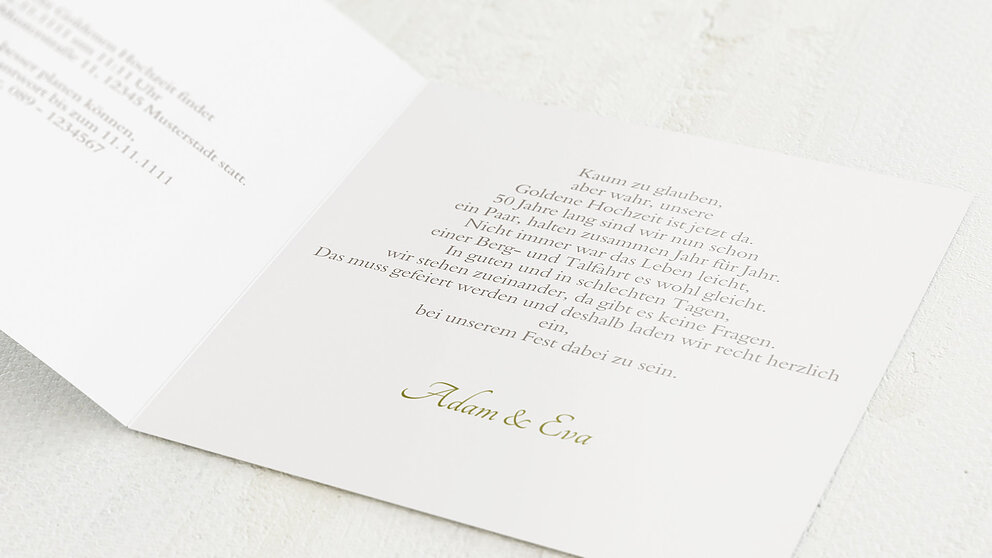 Goldenen Hochzeit findet
11.11.1111 um 11.11 Uhr
11, 12345 Musterstadt statt.
besser planen können,
bis zum 11.11.1111
089 - 1234567
Kaum zu glauben,
aber wahr, unsere
Goldene Hochzeit ist jetzt da.
50 Jahre lang sind wir nun schon
ein Paar, halten zusammen Jahr für Jahr.
Nicht immer war das Leben leicht,
einer Berg- und Talfahrt es wohl gleicht.
In guten und in schlechten Tagen,
wir stehen zueinander, da gibt es keine Fragen.
Das muss gefeiert werden und deshalb laden wir recht herzlich
ein,
bei unserem Fest dabei zu sein.
Adam & Eva